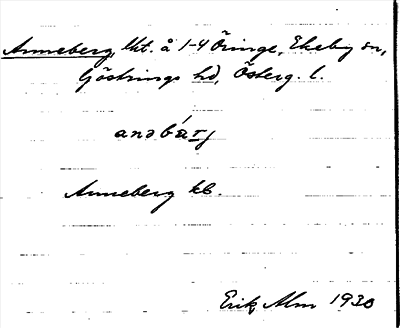 Anneberg, lht. å 1-4 Öringe, Ekeby sn,
Göstrings hd, Österg. l.
Anneberg kb.
Erik Alm 1930